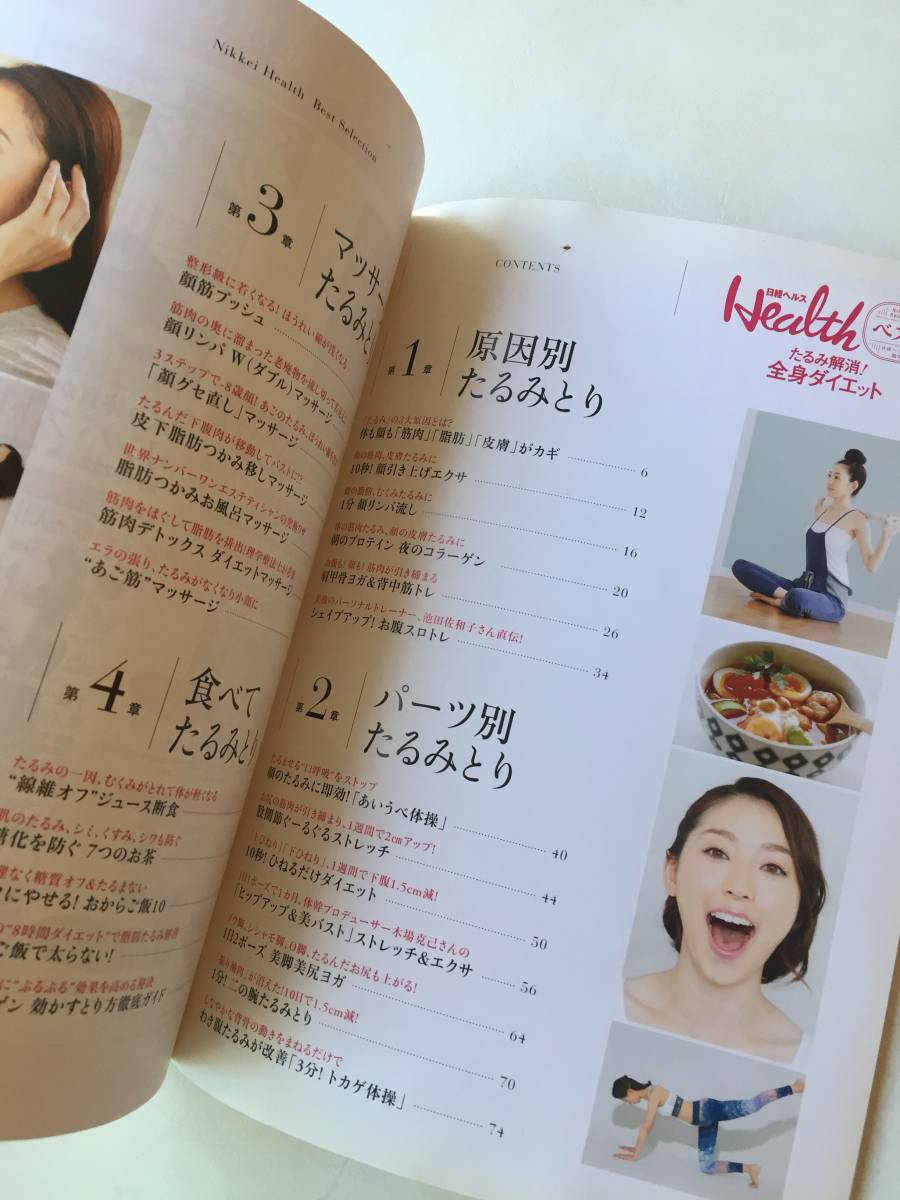 Nikkei Health Best Selection
第3章
マッサー
たるみと
整形級に若くなる! ほうれい線が浅くなる
顔筋プッシュ
筋肉の奥に溜まった老廃物を流し切って
顔リンパ W(ダブル)マッサージ
3ステップで、-8歳顔! あごのたるみ、ほうれい
「顔グセ直し」マッサージ
たるんだ下腹肉が移動してバストに!?
皮下脂肪つかみ移しマッサージ
世界ナンバーワンエステティシャンの
脂肪つかみお風呂マッサージ
筋肉をほぐして脂肪を排出!理学療法士が
筋肉デトックス ダイエットマッサージ
エラの張り、たるみがなくなり小顔に
“あご筋”マッサージ
第4章
食べて
たるみとり
たるみの一因、むくみがとれて体が軽くなる
“線維オフ”ジュース断食
肌のたるみ、シミ、くすみ、シワも防ぐ
糖化を防ぐ 7つのお茶
なく糖質オフ&たるまない
にやせる! おからご飯10
“8時間ダイエット”で脂肪たるみ解消
ご飯で太らない!
に“ぷるぷる”効果を高める秘訣
ゲン 効かすとり方徹底ガイド
CONTENTS
日経ヘルス
Health
たるみ解消!
全身ダイエット
ベス
第1章
原因別
たるみとり
「たるみ」の3大原因とは?
体も顔も「筋肉」「脂肪」「皮膚」がカギ 6
筋肉、皮膚たるみに
10秒! 顔引き上げエクサ 12
脂肪、むくみたるみに
1分 顔リンパ流し 16
体の筋肉たるみ、顔の皮膚たるみに
朝のプロテイン 夜のコラーゲン 20
お腹も! 顔も! 筋肉が引き締まる
肩甲骨ヨガ&背中筋トレ 26
美腹のパーソナルトレーナー、池田佐和子さん直伝!
シェイプアップ! お腹スロトレ 34
第2章
パーツ別
たるみとり
たるませる“口呼吸”をストップ
顔のたるみに即効!「あいうべ体操」 40
お尻の筋肉が引き締まり、1週間で2cmアップ!
股関節ぐーるぐるストレッチ 44
「上ひねり」「下ひねり」、1週間で下腹1.5cm減!
10秒! ひねるだけダイエット 50
1日1ポーズで1カ月、体幹プロデューサー木場克己さんの
「ヒップアップ&美バスト」ストレッチ&エクサ 56
ゾウ脚、シシャモ脚、O脚、たるんだお尻も上がる!
1日2ポーズ 美脚美尻ヨガ 64
「振り袖肉」が消えた!10日で1.5cm減!
1分! 二の腕たるみとり 70
しなやかな背骨の動きをまねるだけで
わき腹たるみが改善「3分! トカゲ体操」 74